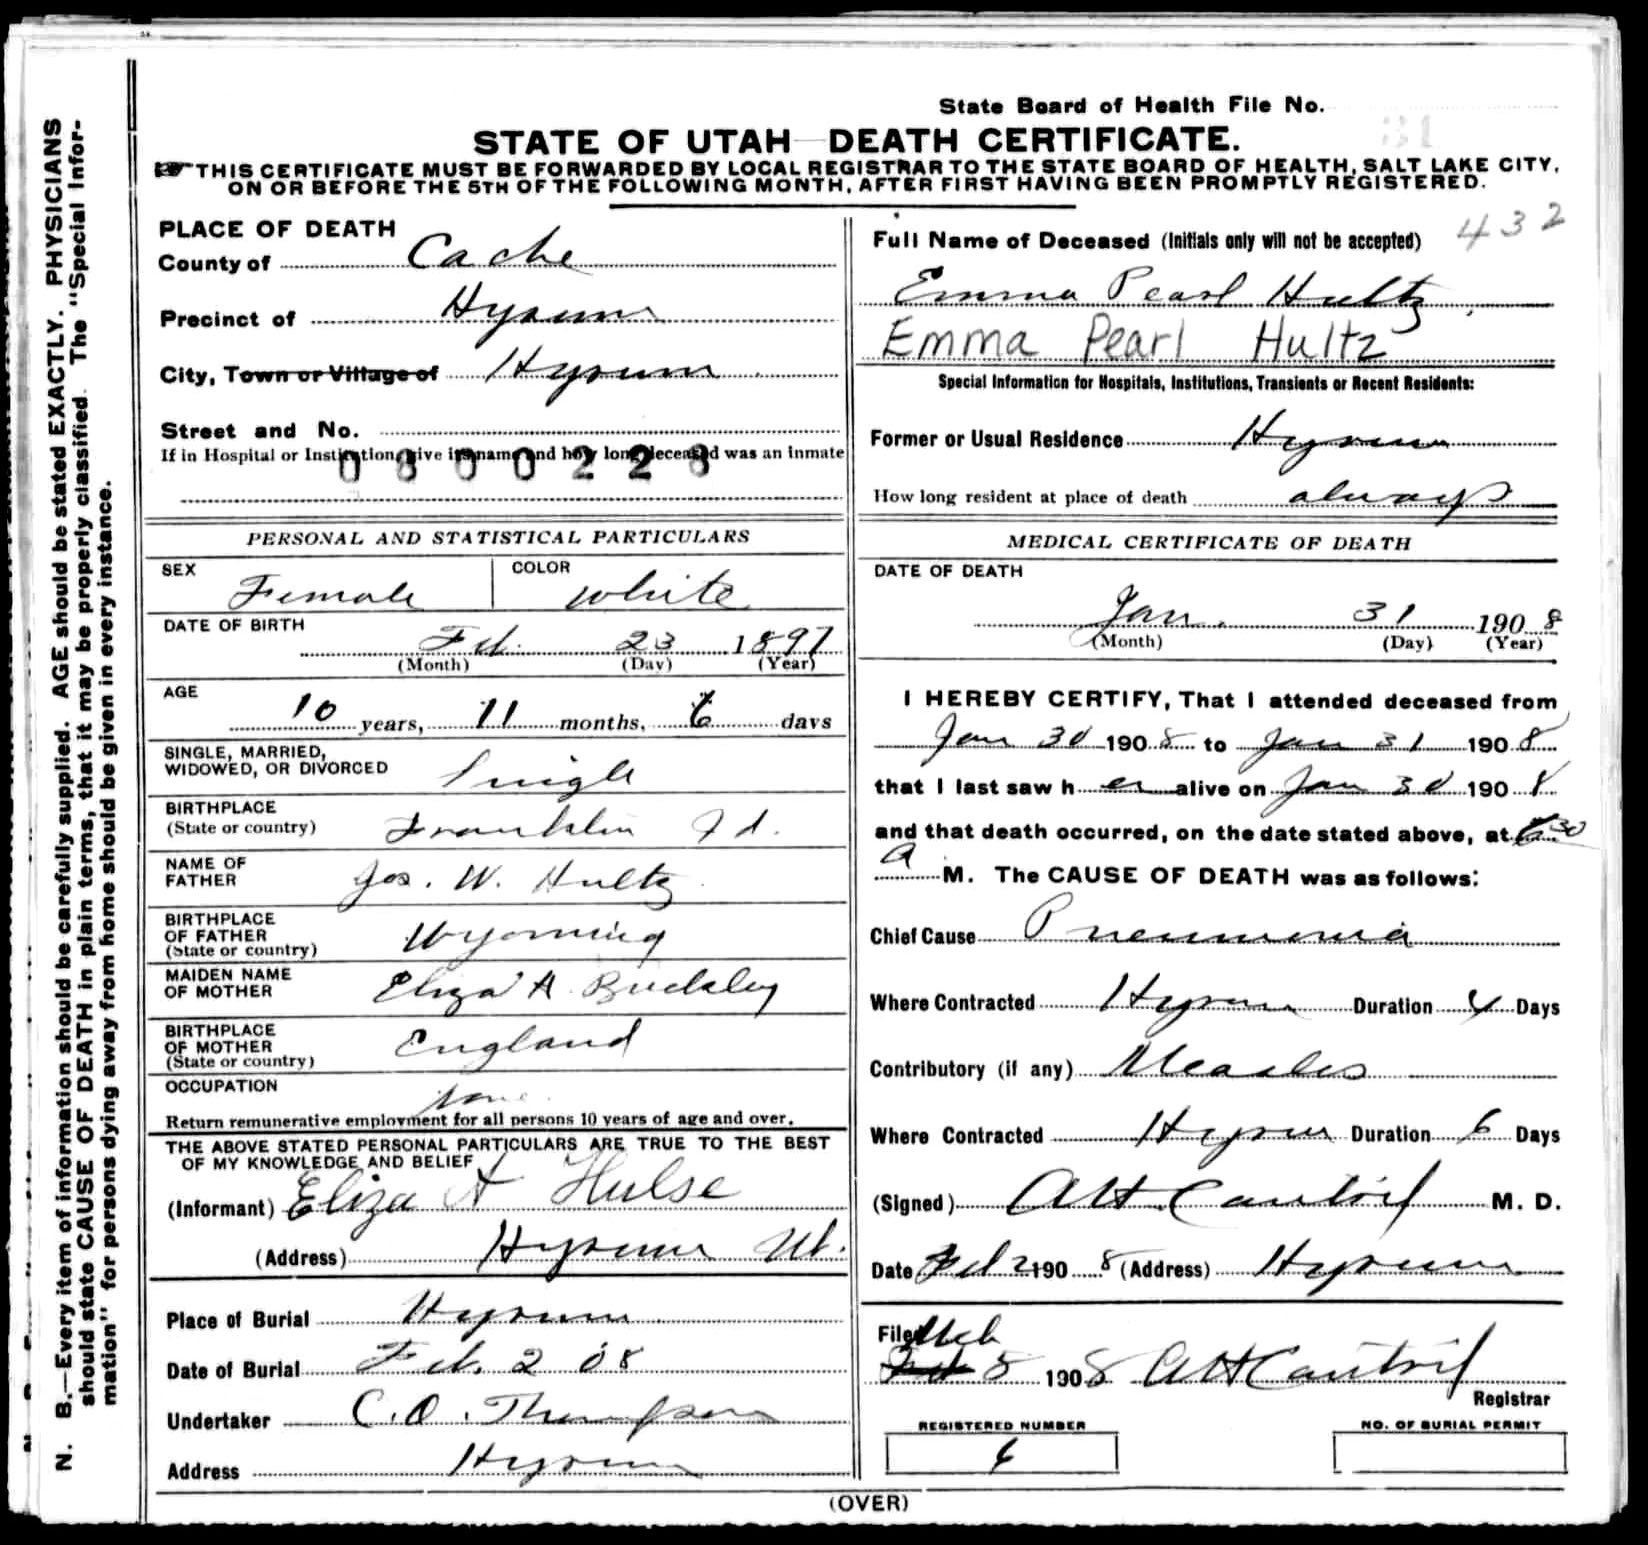 State Board of Health File No.
31
STATE OF UTAH—DEATH CERTIFICATE.
THIS CERTIFICATE MUST BE FORWARDED BY LOCAL REGISTRAR TO THE STATE BOARD OF HEALTH, SALT LAKE CITY,
ON OR BEFORE THE 5TH OF THE FOLLOWING MONTH, AFTER FIRST HAVING BEEN PROMPTLY REGISTERED.
N. B.—Every item of information should be carefully supplied. AGE should be stated EXACTLY. PHYSICIANS
should state CAUSE OF DEATH in plain terms, that it may be properly classified. The "Special Infor-
mation" for persons dying away from home should be given in every instance.
PLACE OF DEATH
County of Cache
Precinct of Hyrum
City, Town or Village of Hyrum
Street and No.
If in Hospital or Institution, give its name and how long deceased was an inmate
0800228
PERSONAL AND STATISTICAL PARTICULARS
SEX Female COLOR White
DATE OF BIRTH
Feb. 23 1897
(Month) (Day) (Year)
AGE
10 years, 11 months, 6 days
SINGLE, MARRIED,
WIDOWED, OR DIVORCED Single
BIRTHPLACE
(State or country) Franklin Id.
NAME OF
FATHER Jos. W. Hultz
BIRTHPLACE
OF FATHER
(State or country) Wyoming
MAIDEN NAME
OF MOTHER Eliza A Buckley
BIRTHPLACE
OF MOTHER
(State or country) England
OCCUPATION none
Return remunerative employment for all persons 10 years of age and over.
THE ABOVE STATED PERSONAL PARTICULARS ARE TRUE TO THE BEST
OF MY KNOWLEDGE AND BELIEF
(Informant) Eliza A Hulse
(Address) Hyrum Ut.
Place of Burial Hyrum
Date of Burial Feb. 2 08
Undertaker C. O. Thompson
Address Hyrum
432
Full Name of Deceased (Initials only will not be accepted)
Emma Pearl Hultz
Emma Pearl Hultz
Special Information for Hospitals, Institutions, Transients or Recent Residents:
Former or Usual Residence Hyrum
How long resident at place of death always
MEDICAL CERTIFICATE OF DEATH
DATE OF DEATH
Jan. 31 1908
(Month) (Day) (Year)
I HEREBY CERTIFY, That I attended deceased from
Jan 30 1908 to Jan 31 1908
that I last saw her alive on Jan 30 1908
and that death occurred, on the date stated above, at 30
a M. The CAUSE OF DEATH was as follows:
Chief Cause Pneumonia
Where Contracted Hyrum Duration 4 Days
Contributory (if any) Measles
Where Contracted Hyrum Duration 6 Days
(Signed) AH Cantril M. D.
Date Feb 2 1908 (Address) Hyrum
Filed Mch
Feb 5 1908 AH Cantril
Registrar
REGISTERED NUMBER NO. OF BURIAL PERMIT
6
(OVER)